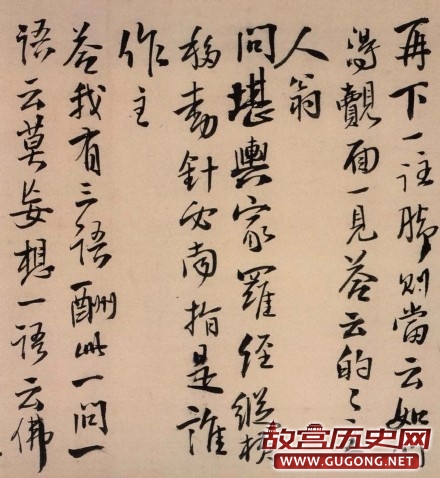 再下一注脚則當云如何
得覿面一見荅云的々
人翁
問堪輿家羅经縱横
移動針必南指是誰
作主
荅我有三語酬此一問一
語云莫妄想一語云佛
故宫历史网
WWW.GUGONG.NET